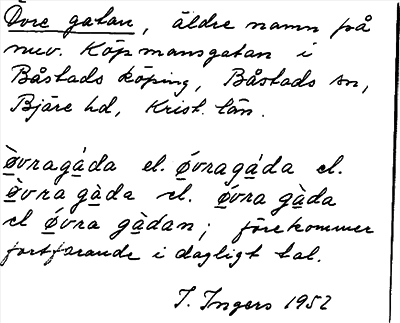 Övre gatan, äldre namn på
nuv. Köpmansgatan i
Båstads köping, Båstads sn,
Bjäre hd, Krist. län.
ò̱vragá̱da el. ó̱vragá̱da el.
ò̱vra gà̱da el. ó̱vra gà̱da
el ó̱vra gà̱dan; förekommer
fortfarande i dagligt tal.
I. Ingers 1952